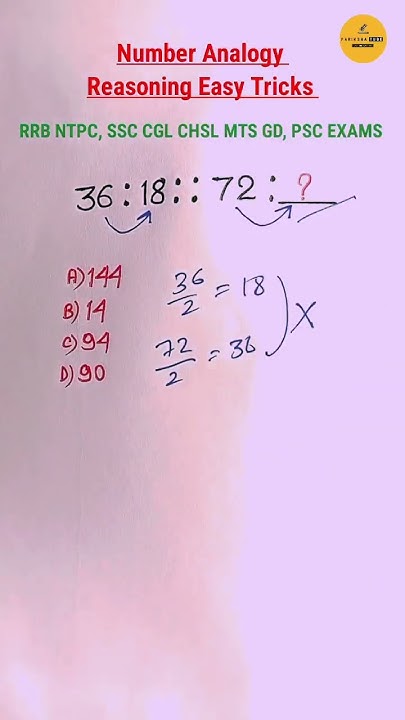 PARIKSHA TUBE
Number Analogy
Reasoning Easy Tricks
RRB NTPC, SSC CGL CHSL MTS GD, PSC EXAMS
36 : 18 : : 72 : ?
A) 144
B) 14
C) 94
D) 90
36/2 = 18
72/2 = 36
X